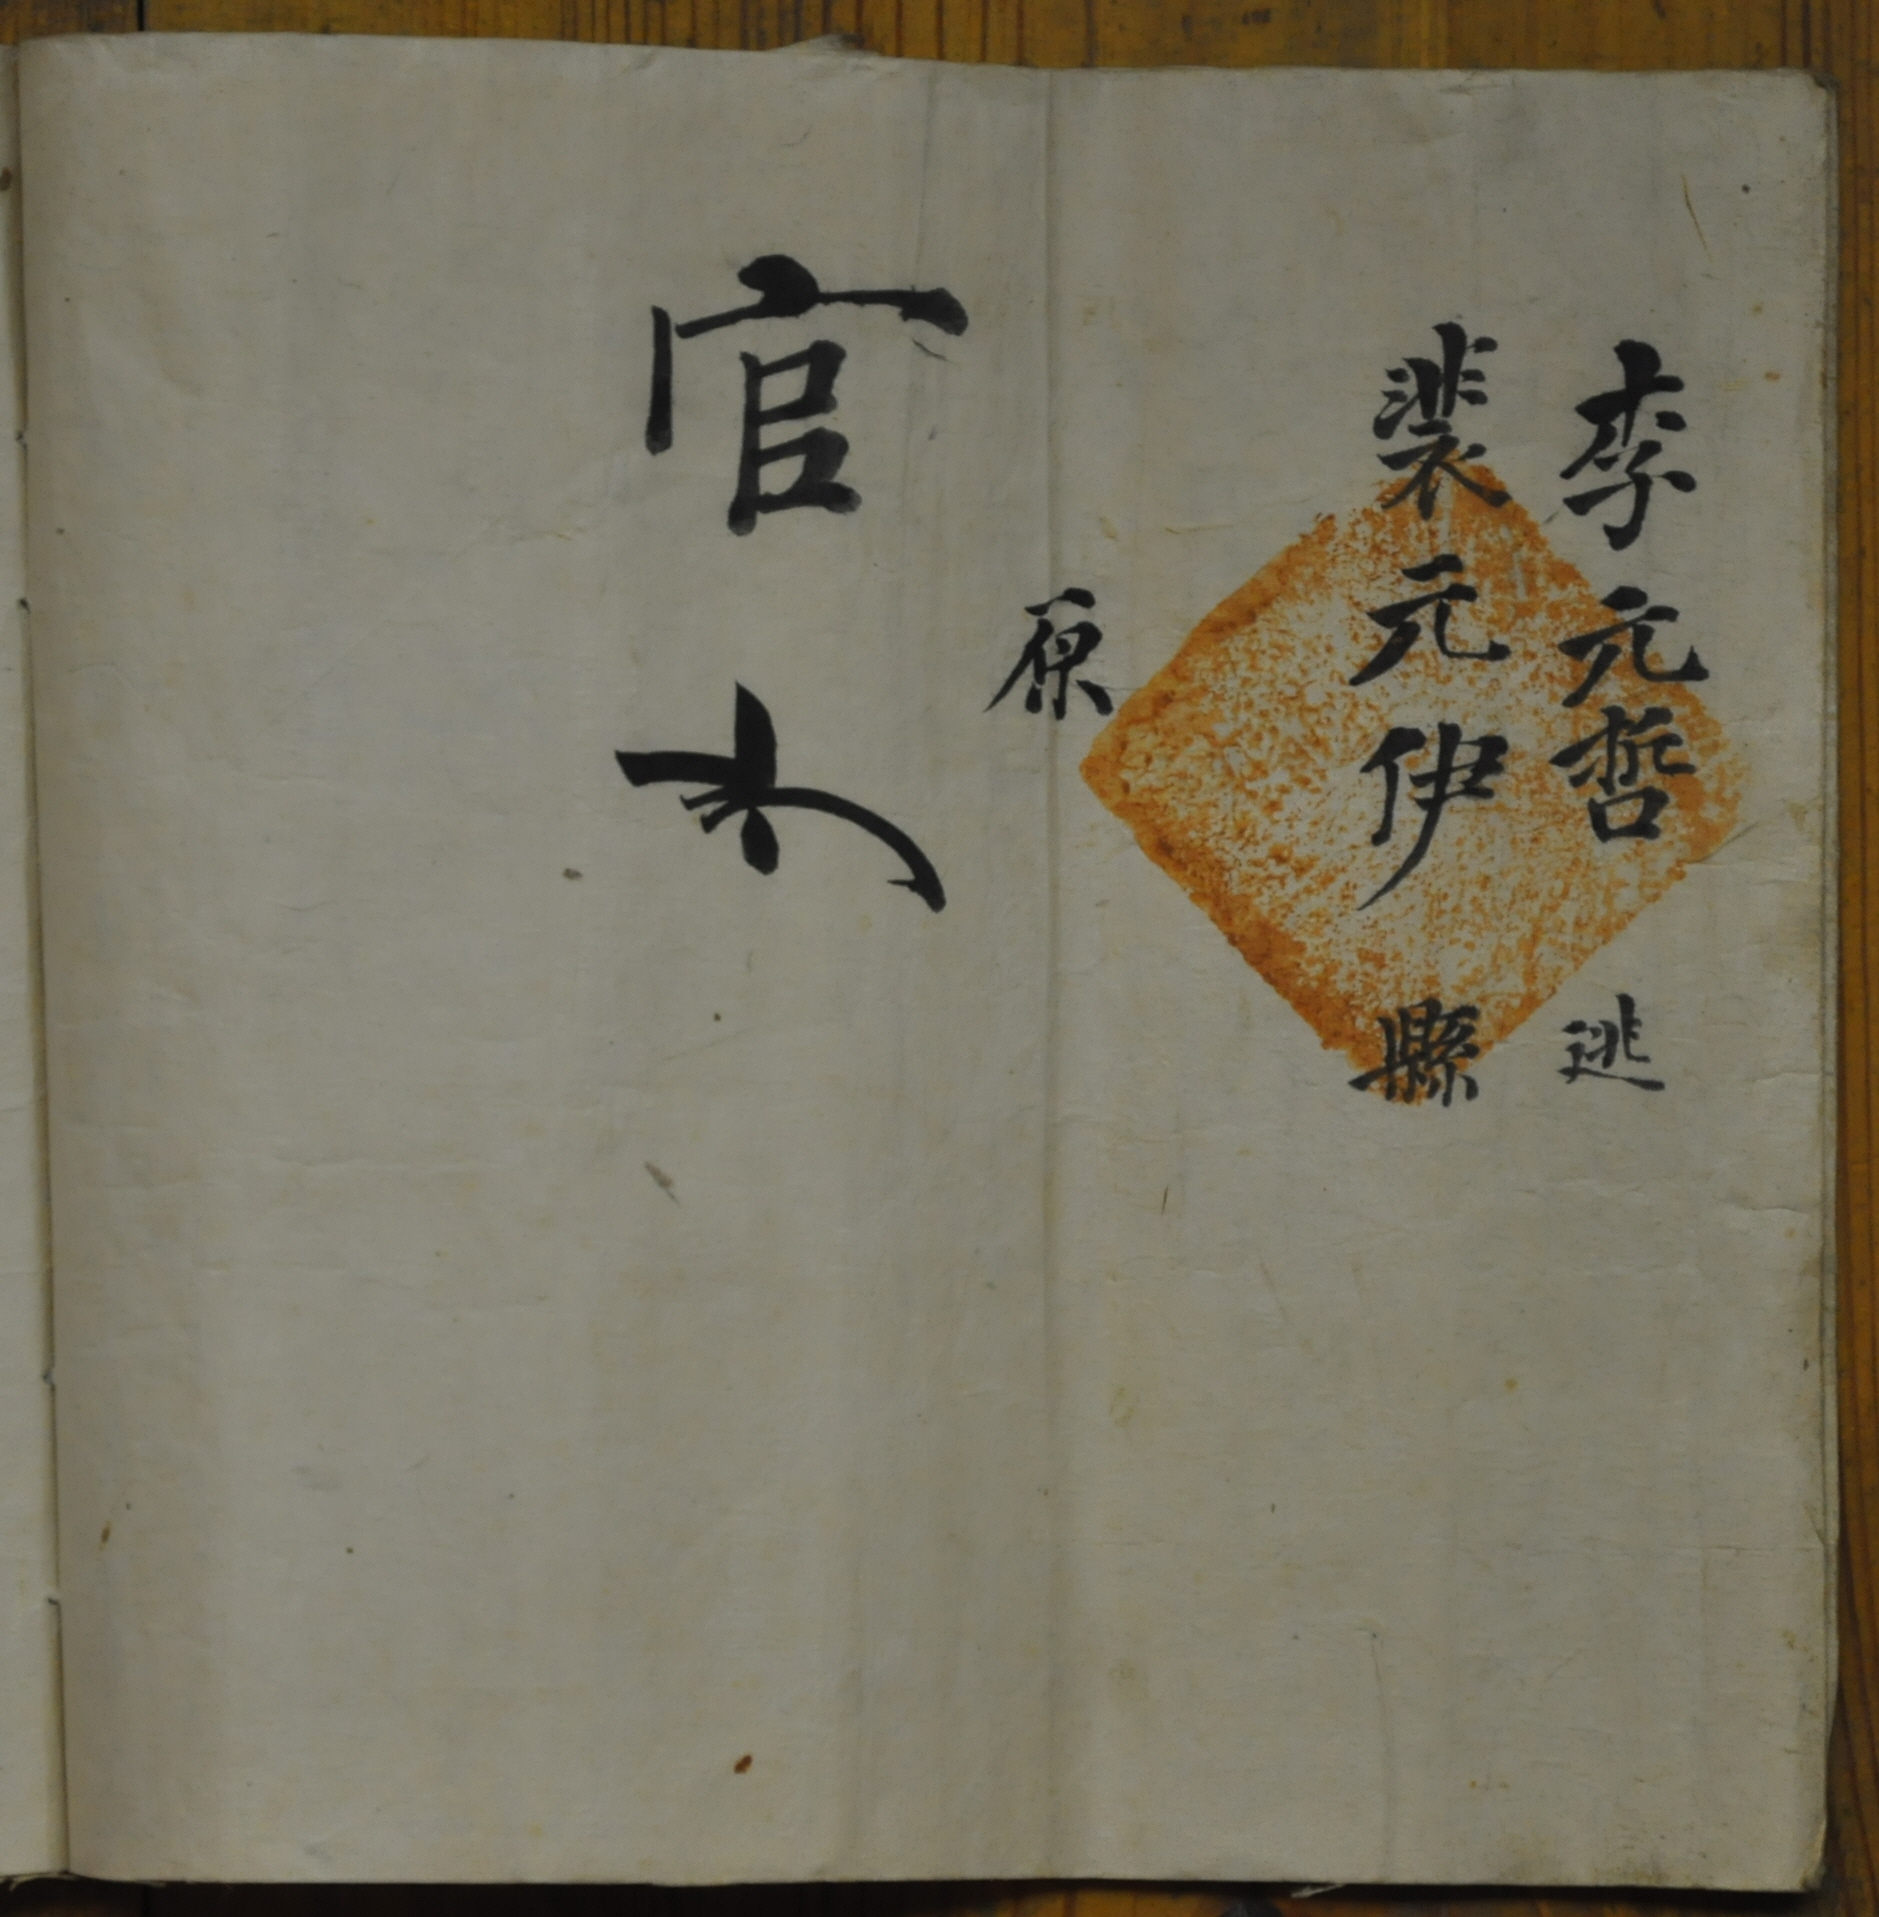 李元哲 逃
裴元伊 縣
原
官